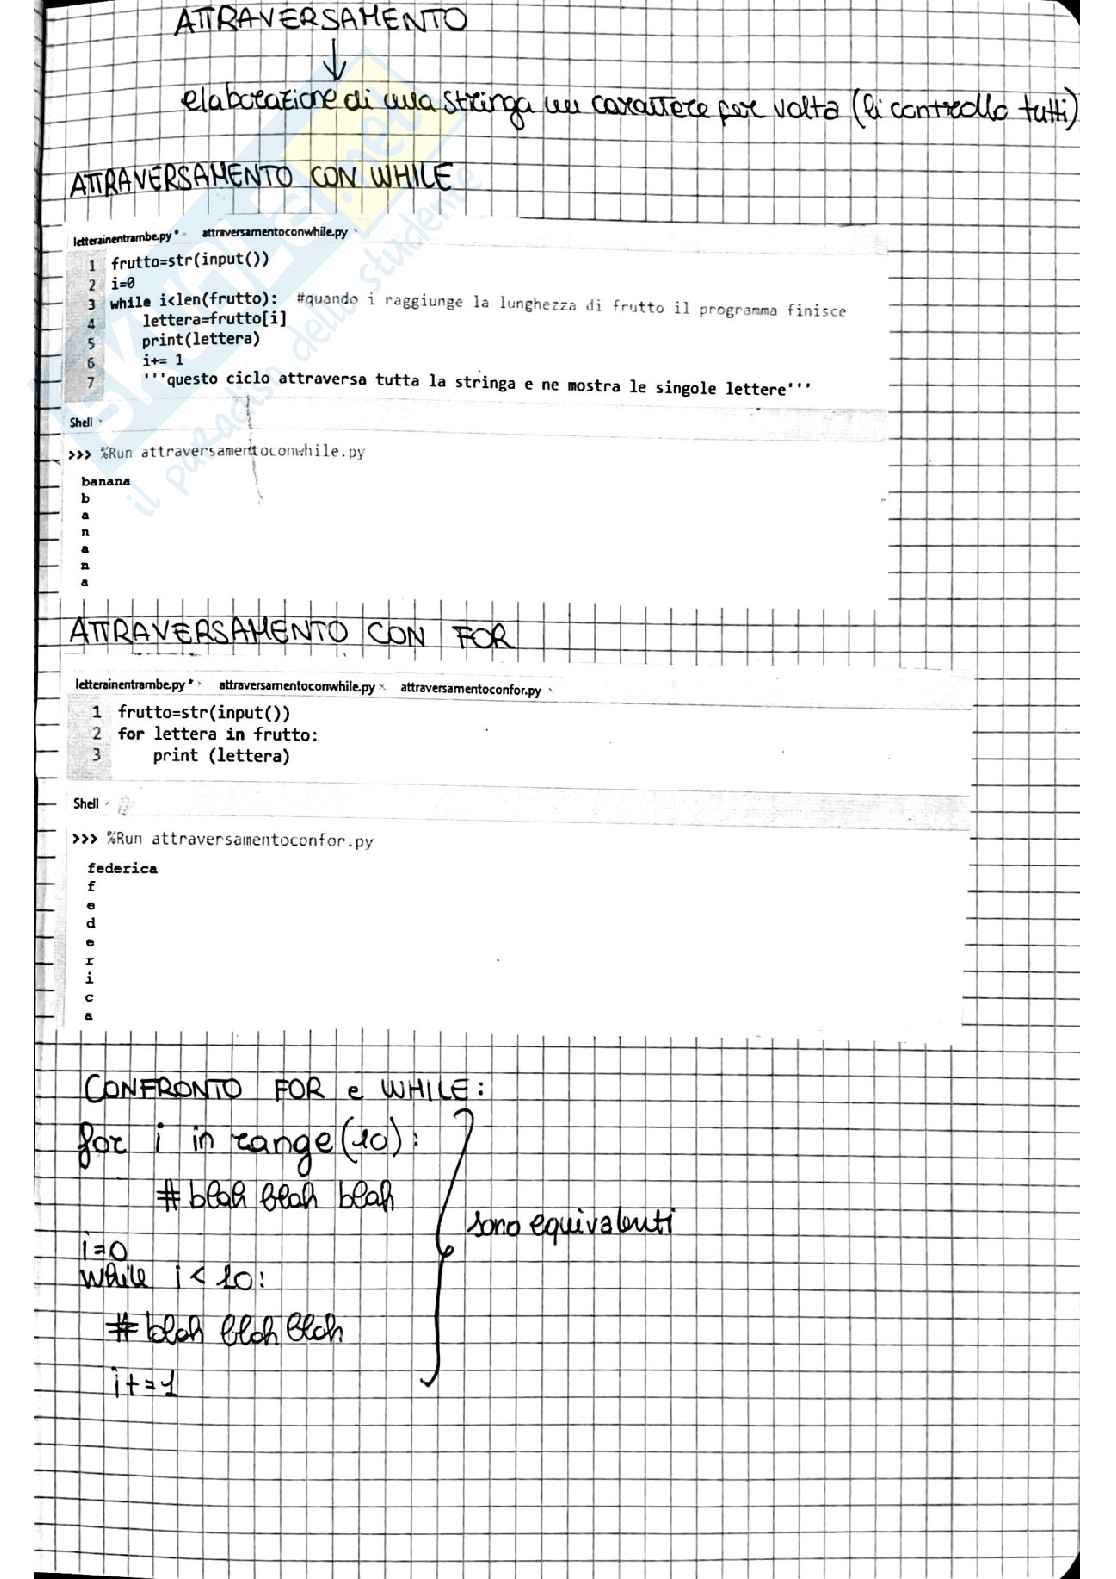 ATTRAVERSAMENTO
elaborazione di una stringa un carattere per volta (li controllo tutti)
ATTRAVERSAMENTO CON WHILE
letterainentrambe.py * × attraversamentoconwhile.py ×
1 frutto=str(input())
2 i=0
3 while i<len(frutto): #quando i raggiunge la lunghezza di frutto il programma finisce
4 lettera=frutto[i]
5 print(lettera)
6 i+= 1
7 '''questo ciclo attraversa tutta la stringa e ne mostra le singole lettere'''
Shell ×
>>> %Run attraversamentoconwhile.py
banana
b
a
n
a
n
a
ATTRAVERSAMENTO CON FOR
letterainentrambe.py * × attraversamentoconwhile.py × attraversamentoconfor.py ×
1 frutto=str(input())
2 for lettera in frutto:
3 print (lettera)
Shell ×
>>> %Run attraversamentoconfor.py
federica
f
e
d
e
r
i
c
a
CONFRONTO FOR e WHILE:
for i in range(10):
#blah blah blah
sono equivalenti
i=0
while i < 10:
#blah blah blah
i+=1
SKUOLA.net
il paradiso dello studente